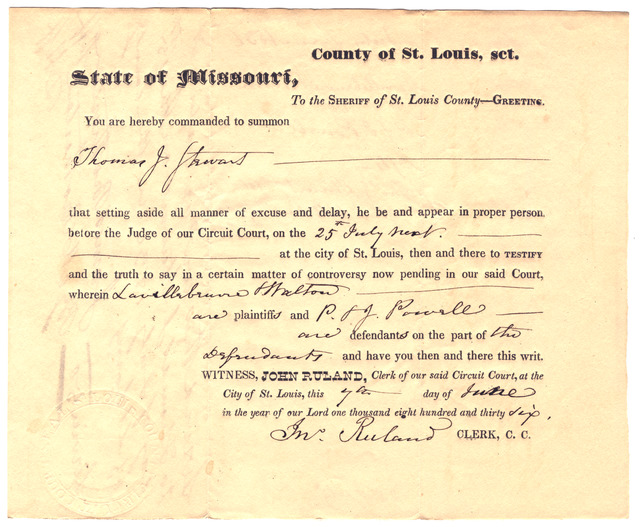 County of St. Louis, sct.
State of Missouri,
To the SHERIFF of St. Louis County—GREETING.
You are hereby commanded to summon
Thomas J. Stewart
that setting aside all manner of excuse and delay, he be and appear in proper person,
before the Judge of our Circuit Court, on the 25th July next.
at the city of St. Louis, then and there to TESTIFY
and the truth to say in a certain matter of controversy now pending in our said Court,
wherein Lavillebeuvre & Walton
are plaintiffs and P. & J. Powell
are defendants on the part of the
Defendants and have you then and there this writ.
WITNESS, JOHN RULAND, Clerk of our said Circuit Court, at the
City of St. Louis, this 7th day of June
in the year of our Lord one thousand eight hundred and thirty six.
Jno. Ruland CLERK, C. C.